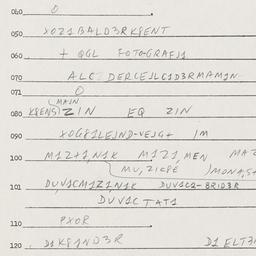 060 O
050 XOZ1BALD3RK8ENT
060 + QGL FOTOGRAFJ1
070 ALC DERCEJLC1D3RMAM1N
071 O
MAJN
080 K8ENS) ZIN EQ ZIN
090 XOG81LEJND-VEJG+ 1M
100 M1Z+1,N1K M1Z1,MEN MAZ
MV,ZIC8É )MONA,S+
101 DU,V1CM1Z1N1K DUV1CQ-BRID3R
DUV1CTAT1
110 PXOR
120 D1K8JND3R D1ELT3R